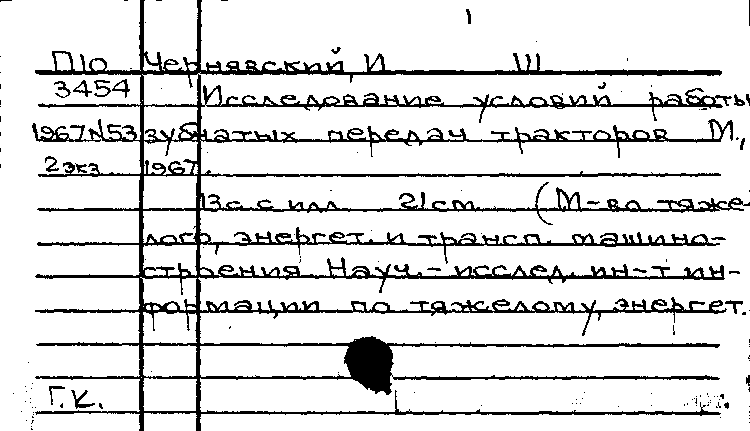 П10 Чернявский, И Ш
3454 Исследование условий работы
1967N53 зубчатых передач тракторов М.,
2 экз 1967.
13 с с илл 21 cm (М-во тяже-
лого, энергет. и трансп. машино-
строения Науч.- исслед. ин-т ин-
формации по тяжелому, энергет.
Г.К.